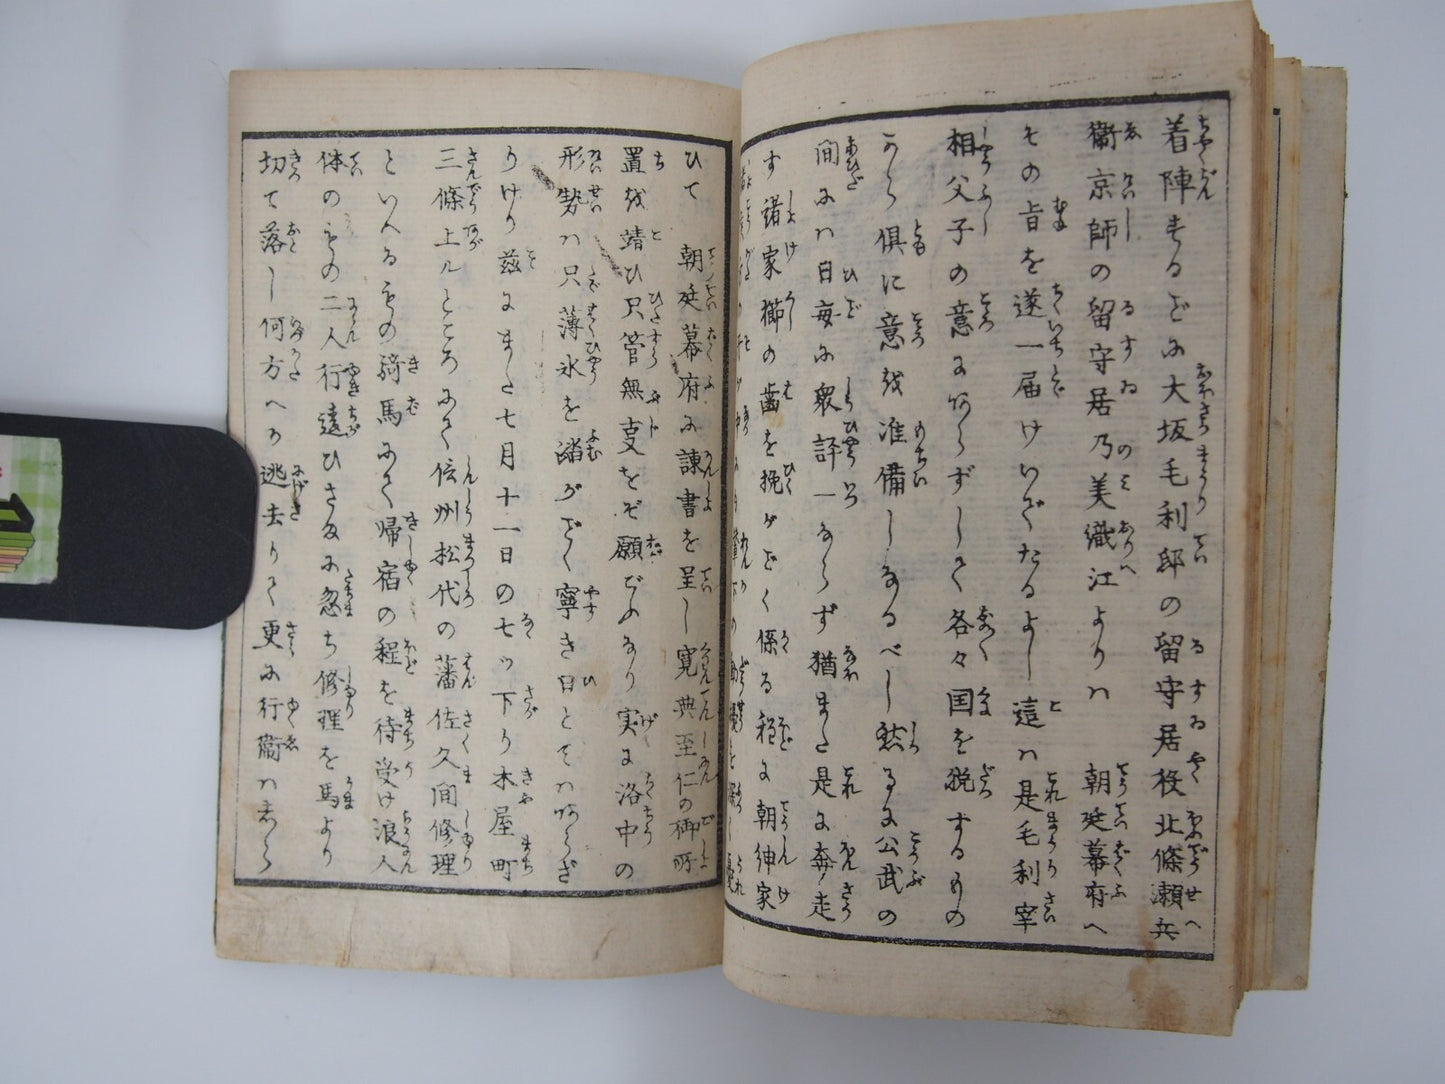 着陣するどに大坂毛利邸の留守居役北條瀬兵
衛京師の留守居乃美織江よりハ 朝廷幕府へ
その旨を遂一届けいでたるよし這ハ是毛利宰
相父子の意にあらずして各々国を脱するもの
から倶に意を准備しなるべし然るに公武の
間にハ日毎に衆評一ならず猶また是に奔走
す諸家櫛の歯を挽がごとく係る程に朝紳家
ひて 朝廷幕府に諌書を呈し寛典至仁の御所
置を請ひ只管無事をぞ願ひぬなり実に洛中の
形勢ハ只薄氷を踏がごとく寧き日とてハあらざ
りけり茲にまた七月十一日の七ツ下り木屋町
三條上ルところにて信州松代の藩佐久間修理
といへるもの騎馬にて帰宿の程を待受け浪人
体のもの二人行違ひさまに忽ち修理を馬より
切て落し何方へか逃去りて更に行衛ハ志ら